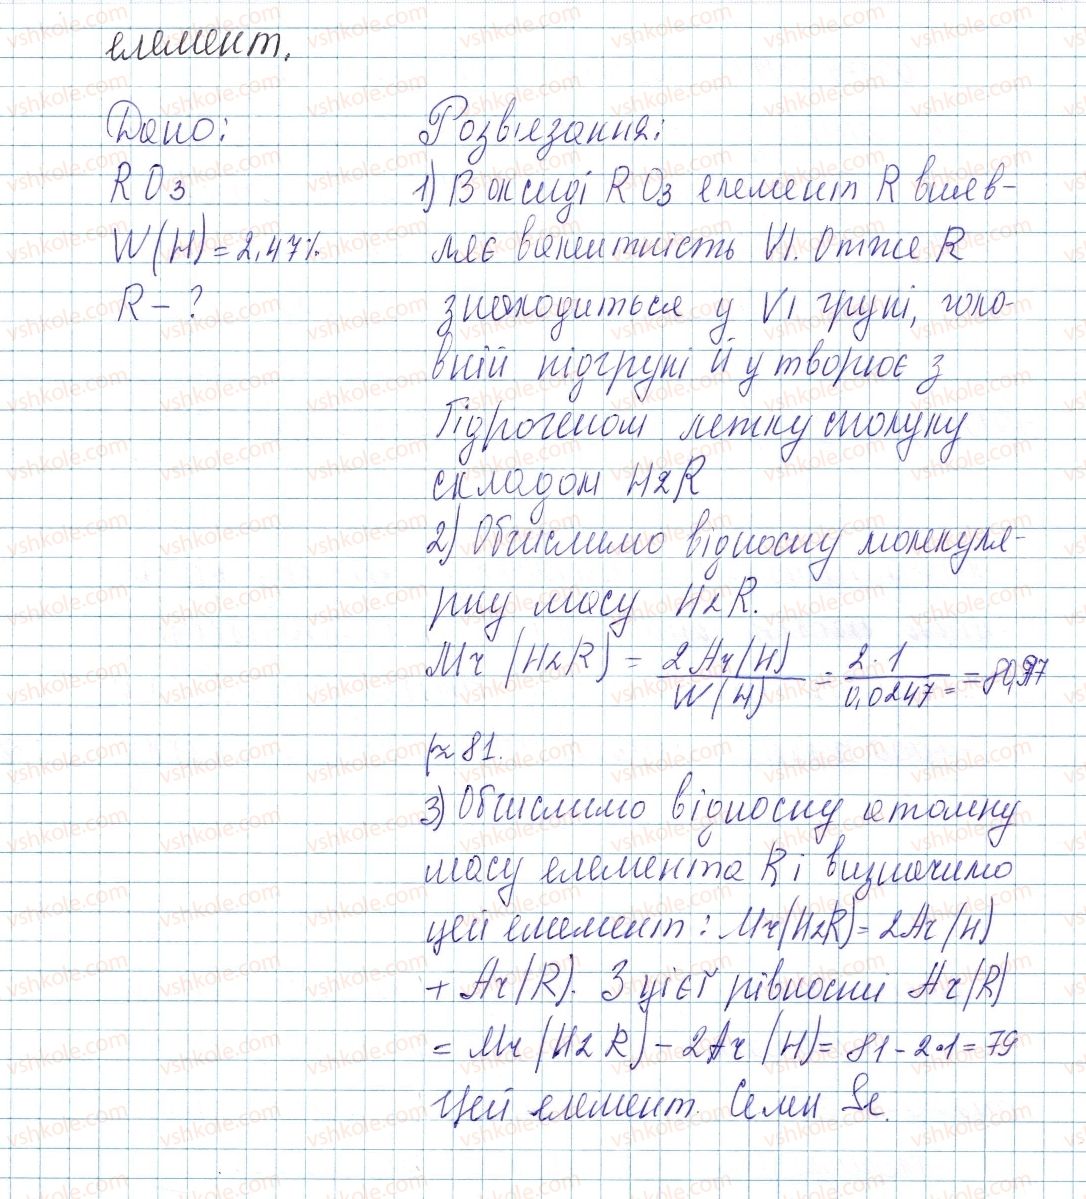 елемент.
Дано: Розв'язання:
RO3 1) В оксиді RO3 елемент R вияв-
W(H)=2,47% ляє валентність VI. Отже R
R - ? знаходиться у VI групі, голо-
вній підгрупі й утворює з
Гідрогеном летку сполуку
складом H2R
2) Обчислимо відносну молекуля-
рну масу H2R.
Mr (H2R) = 2Ar(H) / W(H) = 2·1 / 0,0247 = = 80,97
≈ 81.
3) Обчислимо відносну атомну
масу елемента R і визначимо
цей елемент: Mr(H2R) = 2Ar(H)
+ Ar(R). З цієї рівності Ar(R)
= Mr(H2R) - 2Ar(H) = 81 - 2·1 = 79
Цей елемент. Селен Se.